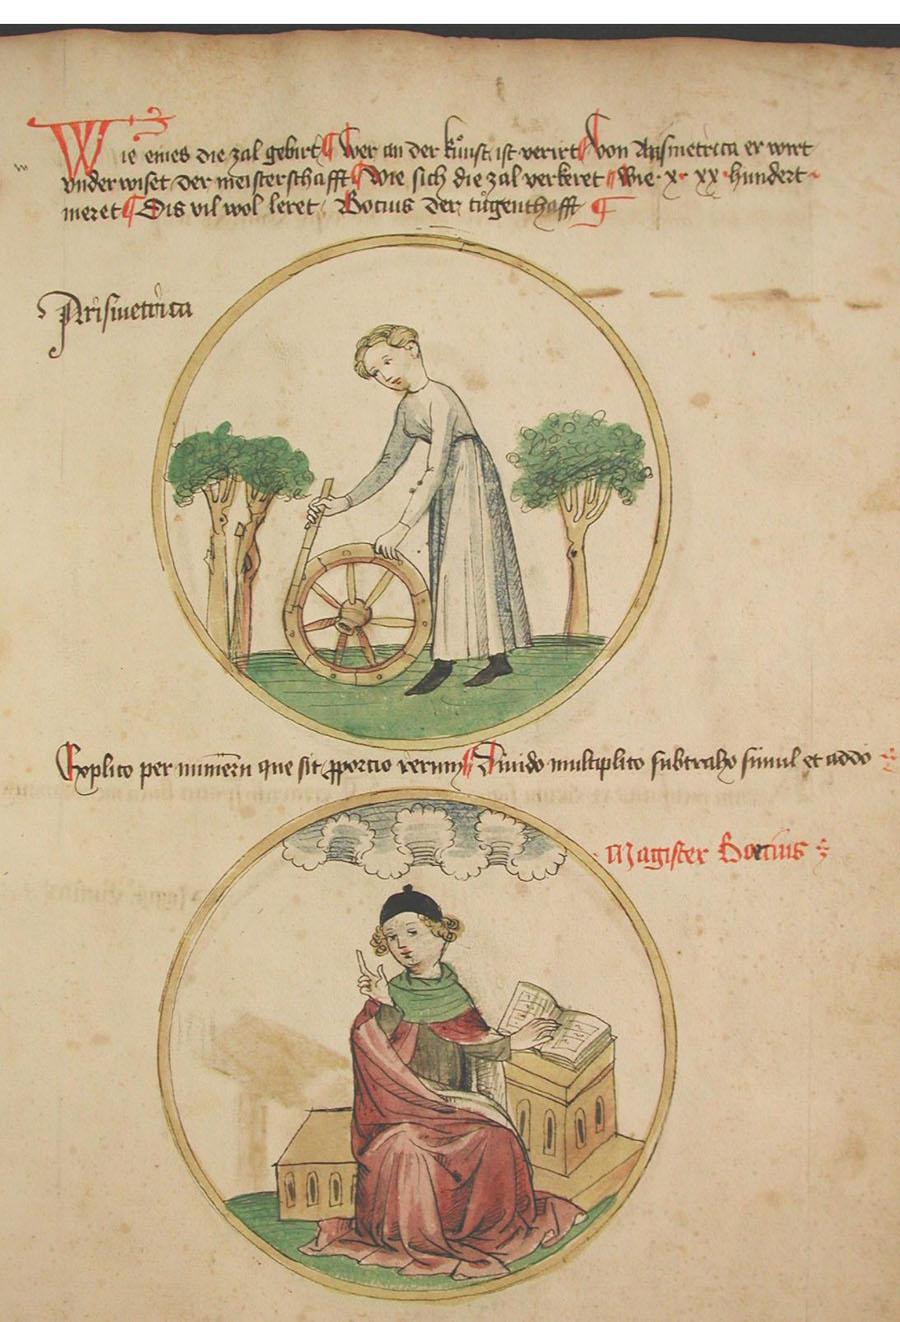 Wie eines die zal gebirt Wer an der kunst ist verirt Von Arismetrica er wirt
vnder wiset der meisterschafft Wie sich die zal verkeret Wie x xx hundert
meret Dis vil wol leret Bocius der tugenthafft
Arismetrica
Explico per numerum que sit proporcio rerum Diuido multiplico subtraho simul et addo
Magister Bocius